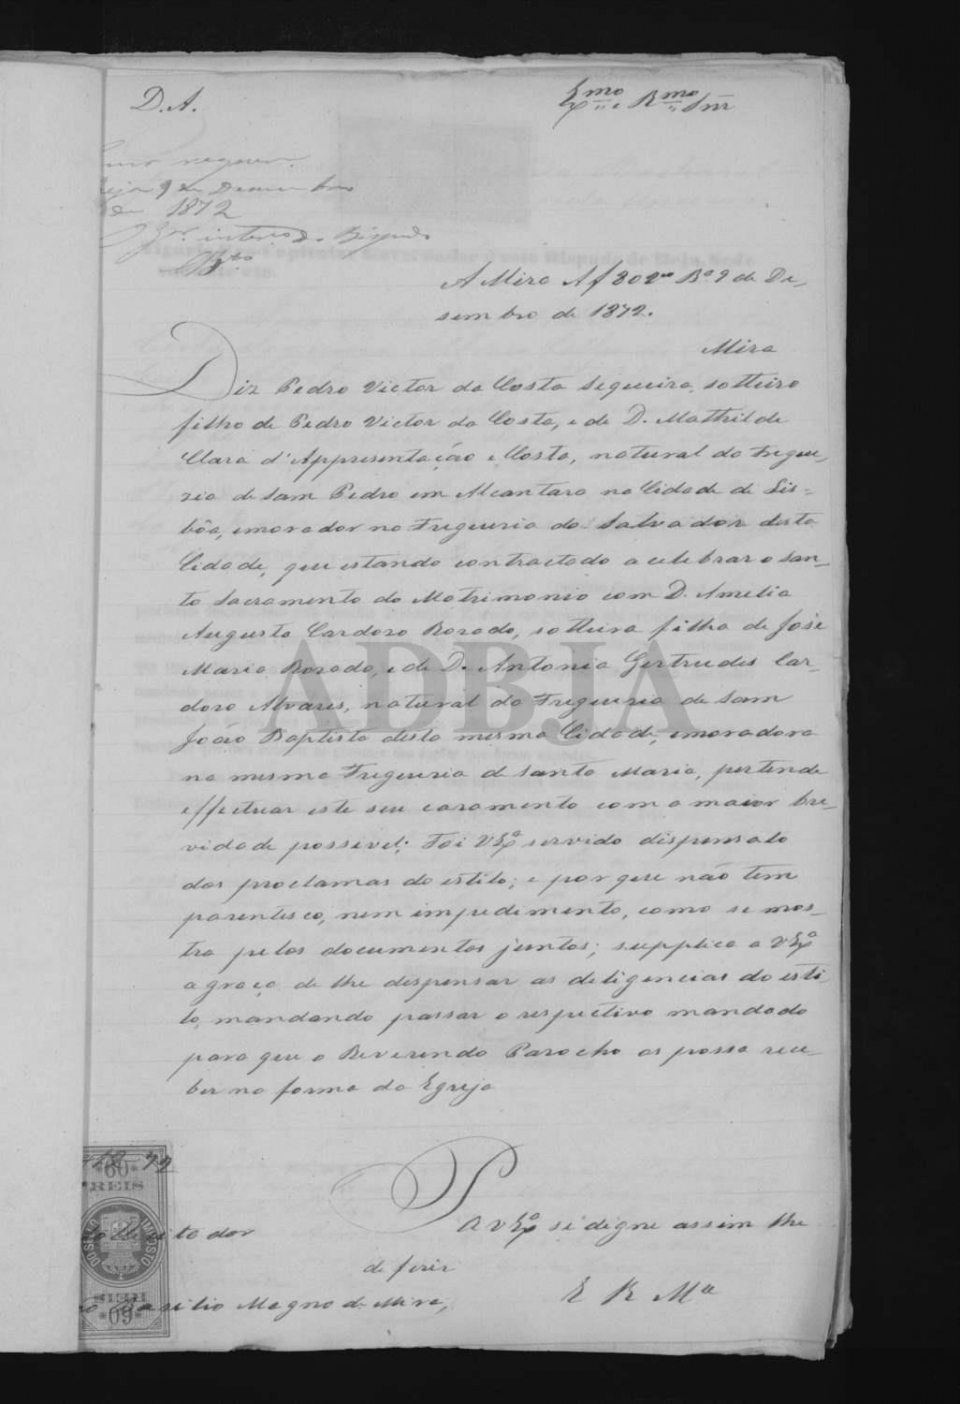 D. A.
Exmo e Rmo Snr
requer.
Beja 9 de Dezembro
de 1872
A Mira Af 302 Bª 9 de De-
sembro de 1872.
Mira
Diz Pedro Victor da Costa Sequeira, solteiro
filho de Pedro Victor da Costa, e de D. Mathilde
Clara d'Appresentação e Costa, natural da Fregue-
zia de Sam Pedro em Alcantara na Cidade de Lis-
bôa, e morador na Freguezia do Salvador desta
Cidade, que estando contractado a celebrar o San-
to Sacramento do Matrimonio com D. Amelia
Augusta Cardozo Rozado, solteira filha de José
Maria Rozado, e de D. Antonia Gertrudes Car-
dozo Alvares, natural da Freguezia de Sam
João Baptista desta mesma Cidade, e moradora
na mesma Freguezia de Santa Maria, pertende
effectuar este seu cazamento com a maior bre-
vidade possivel; Foi V Exª servido dispensalo
dos proclamas do estilo; e por que não tem
parentesco, nem impedimento, como se mos-
tra pelos documentos juntos; supplica a V Exª
a graça de lhe despensar as deligencias do esti-
lo, mandando passar o respectivo mandado
para que o Reverendo Parocho os possa rece-
ber na forma da Egreja
P
a V Exª se digne assim lhe
deferir
E R Mce
72
60
REIS
IMPOSTO DO SELLO
REIS
60
Basilio Magno de Mira,
ADBJA